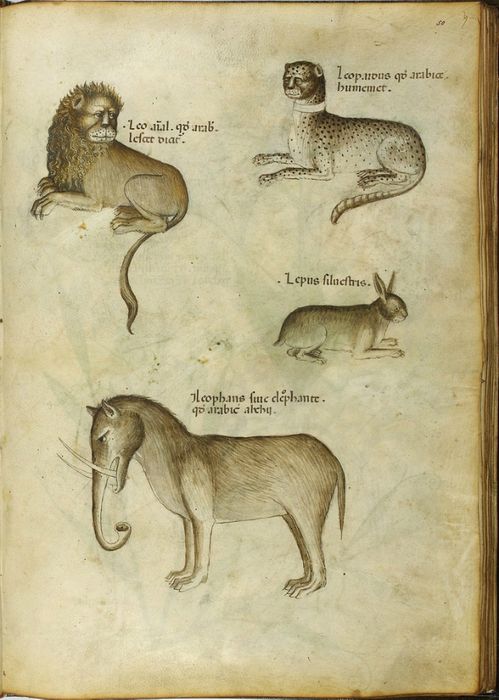 50
Leo a̅i̅al. qđ arab̅.
lesēt dicit̅.
Leopardus qđ arabice
humemet.
Lepus siluestris.
Leophans siue elephante.
qđ arabice alchij.